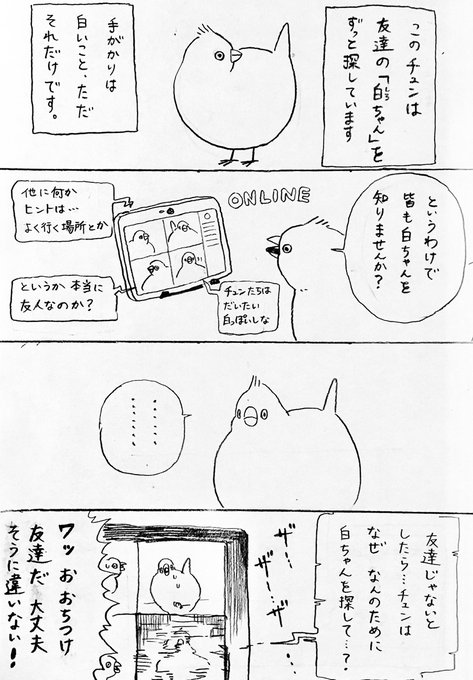 このチュンは
友達の「白ちゃん」を
しろ
ずっと探しています
手がかりは
白いこと、ただ
それだけです。
というわけで
皆も白ちゃんを
知りませんか?
ONLINE
他に何か
ヒントは…
よく行く場所とか
というか 本当に
友人なのか?
チュンたちは
だいたい
白っぽいしな
………
………
友達じゃないと
したら…チュンは
なぜ なんのために
白ちゃんを探して…?
ザー…
ザー…
ザ…
ワッ おおちつけ
友達だ 大丈夫
そうに違いない!